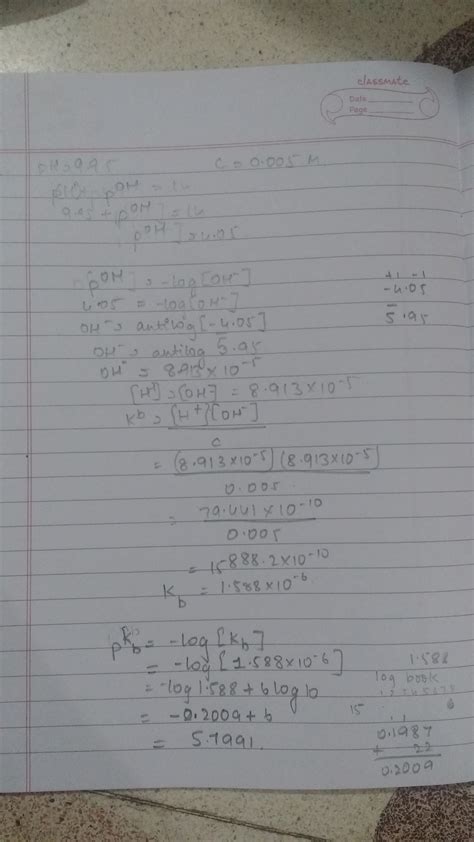 classmate
Date
Page
pH = 9.95 C = 0.005 M
pH + pOH = 14
9.95 + [pOH] = 14
[pOH] = 4.05
[pOH] = -log[OH⁻]
4.05 = -log[OH⁻]
OH⁻ = antilog[-4.05]
OH⁻ = antilog 5̅.95
OH⁻ = 8.913 × 10⁻⁵
+1 -1
-4.05
5̅.95
[H⁺] = [OH⁻] = 8.913 × 10⁻⁵
Kb = [H⁺][OH⁻]
C
= (8.913 × 10⁻⁵) (8.913 × 10⁻⁵)
0.005
= 79.441 × 10⁻¹⁰
0.005
= 15888.2 × 10⁻¹⁰
Kb = 1.588 × 10⁻⁶
pKb = -log[Kb]
= -log[1.588 × 10⁻⁶]
= -log 1.588 + 6 log 10
= -0.2009 + 6
= 5.7991
1.588
log book
15 6
0.1987
+ 22
0.2009